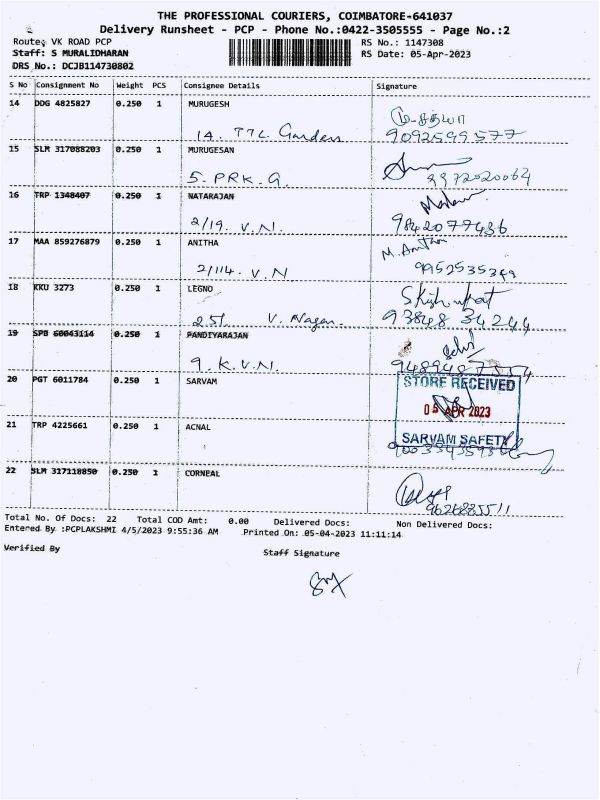 THE PROFESSIONAL COURIERS, COIMBATORE-641037
Delivery Runsheet - PCP - Phone No.:0422-3505555 - Page No.:2
Route: VK ROAD PCP RS No.: 1147308
Staff: S MURALIDHARAN RS Date: 05-Apr-2023
DRS No.: DCJB114730802
S No Consignment No Weight PCS Consignee Details Signature
14 DDG 4825827 0.250 1 MURUGESH
14. TTL Garden 9092599577
15 SLM 317088203 0.250 1 MURUGESAN
5. PRK. G.
16 TRP 1348407 0.250 1 NATARAJAN
2/19. V.N. 9842077436
17 MAA 859276879 0.250 1 ANITHA M. Anitha
2/114. V.N 9952535349
18 KKU 3273 0.250 1 LEGNO
251. V. Nagar. 93848 34244
19 SPB 60043114 0.250 1 PANDIYARAJAN
9. K.V.N. 9489487554
20 PGT 6011784 0.250 1 SARVAM STORE RECEIVED
05 APR 2023
21 TRP 4225661 0.250 1 ACNAL
SARVAM SAFETY
22 SLM 317118850 0.250 1 CORNEAL
9626885511
Total No. Of Docs: 22 Total COD Amt: 0.00 Delivered Docs: Non Delivered Docs:
Entered By :PCPLAKSHMI 4/5/2023 9:55:36 AM Printed On: 05-04-2023 11:11:14
Verified By Staff Signature